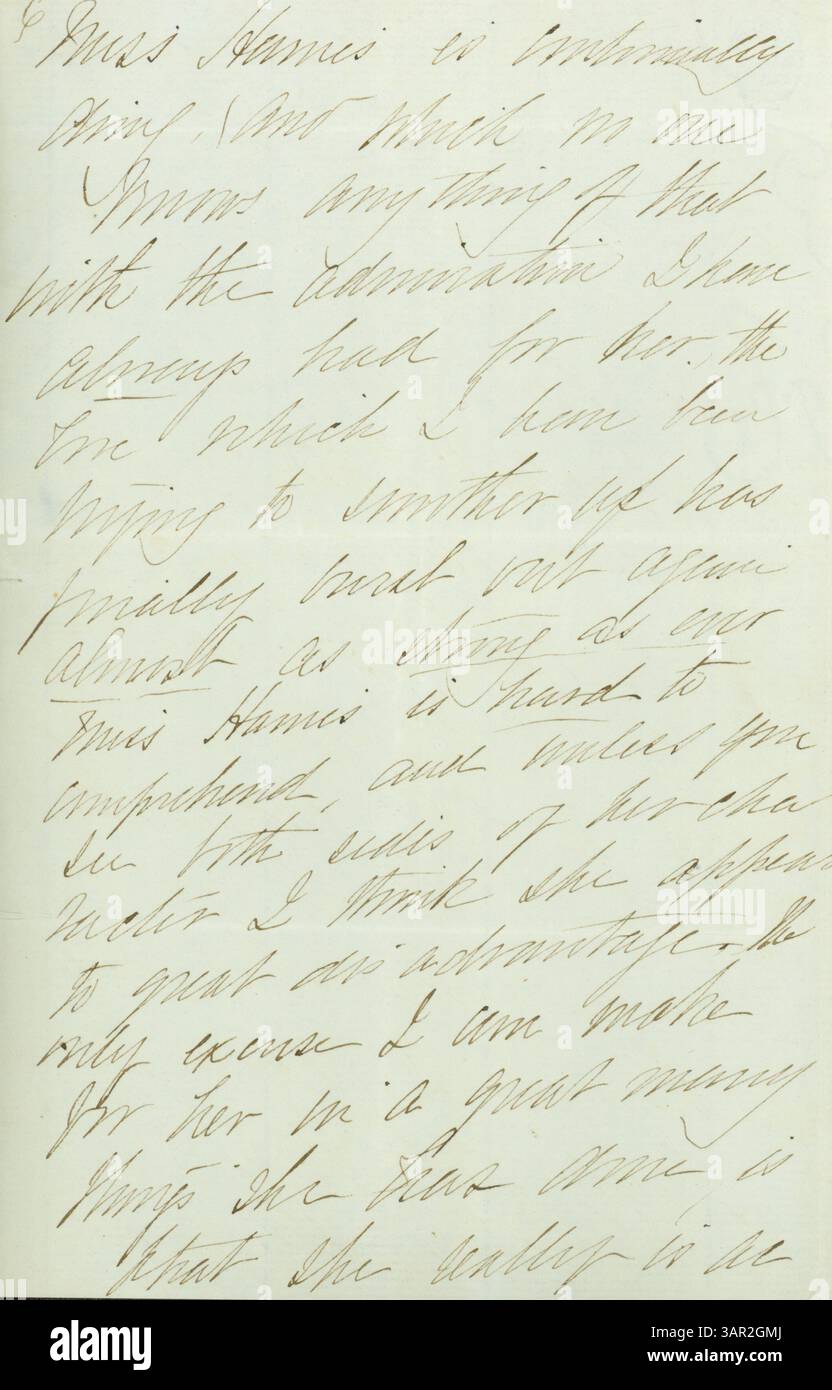 6
Miss Harris is continually
doing, (and which no one
knows anything of) that
with the admiration I have
always had for her, the
love which I have been
trying to smother up has
finally burst out again
almost as strong as ever
Miss Harris is hard to
comprehend, and unless you
see both sides of her cha
racter I think she appears
to great disadvantage. The
only excuse I can make
for her in a great many
things she has done, is
that she really is ac
alamy
Image ID: 3AR2GMJ
www.alamy.com